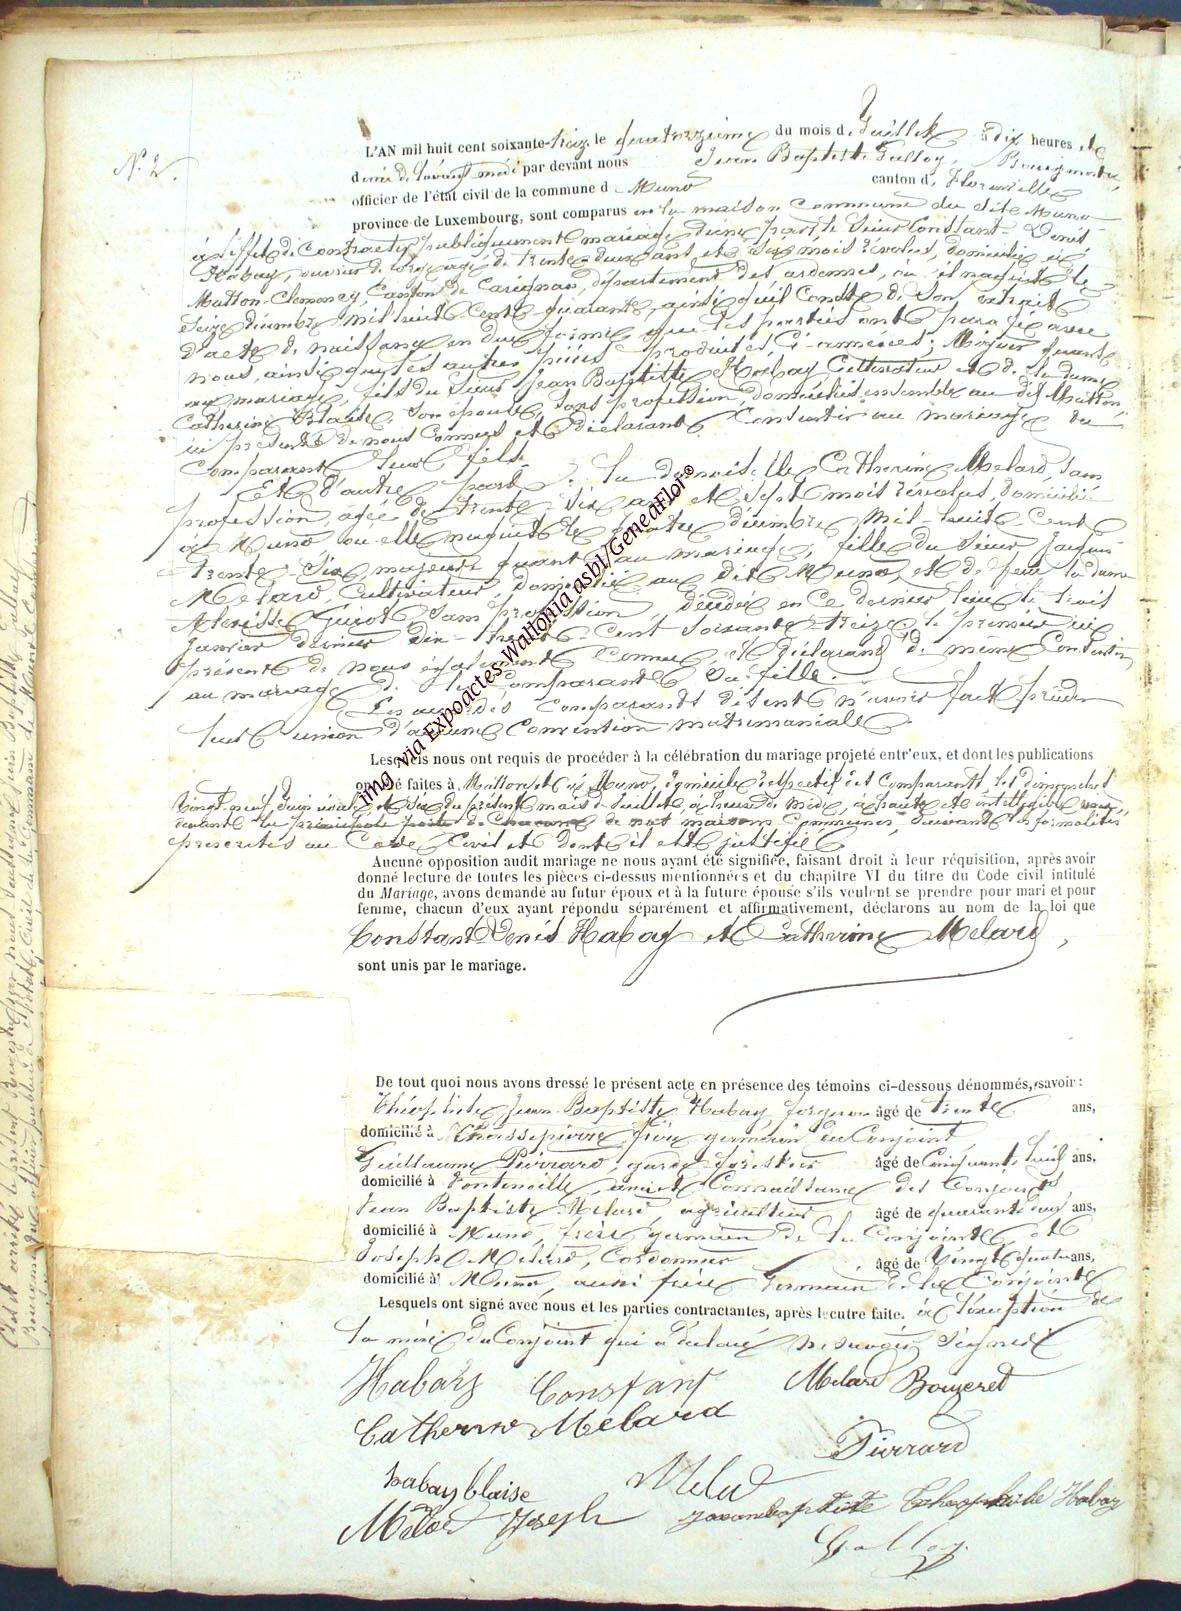 N° 2.
L'AN mil huit cent soixante-treize le quatorzième du mois de Juillet à dix heures et
demie de l'avant midi par devant nous Jean Baptiste Galloy, Bourgmestre,
officier de l'état civil de la commune de Muno canton de Florenville
province de Luxembourg, sont comparus en la maison commune du dit Muno
à l'effet de contracter publiquement mariage, d'une part le Sieur Constant Denis
Habay, ouvrier de forge, âgé de trente deux ans et six mois révolus, domicilié à
Matton-Clemency, Canton de Carignan, département des ardennes, où il naquit le
Seize décembre mil huit cent quarante, ainsi qu'il conste de son extrait
d'acte de naissance en due forme que les parties ont paraphé avec
nous, ainsi que les autres pièces produites, ci-annexées; Majeur quant
au mariage, fils du Sieur Jean Baptiste Habay Cultivateur et de la dame
Catherine Blaise, son épouse, sans profession, domiciliés ensemble au dit Matton,
ici présents de nous connus et déclarant consentir au mariage du
comparant leur fils.
Et d'autre part, la demoiselle Catherine Melard, sans
profession, âgée de trente-six ans et sept mois révolus, domiciliée
à Muno, où elle naquit le quatre décembre mil-huit-cent
trente-six majeure quant au mariage, fille du Sieur Jacques
Melard, Cultivateur, domicilié au dit Muno, et de feue la dame
Guiot, sans profession, décédée en ce dernier lieu le trois
Janvier dernier dix-huit-cent soixante-treize, le premier ici
présent de nous également connu, et déclarant de même consentir
au mariage de la comparante sa fille.
Les auxdits comparants disent n'avoir fait précéder
leur union d'aucune convention matrimoniale
Lesquels nous ont requis de procéder à la célébration du mariage projeté entr'eux, et dont les publications
ont été faites à Matton et à Muno, domicile respectif des comparants les dimanches
vingt-neuf Juin écoulé et six du présent mois de Juillet, à heure de midi, à haute et intelligible voix,
devant la principale porte de chacune de nos maisons communes, suivant les formalités
prescrites au Code Civil et dont il est justifié
Aucune opposition audit mariage ne nous ayant été signifiée, faisant droit à leur réquisition, après avoir
donné lecture de toutes les pièces ci-dessus mentionnées et du chapitre VI du titre du Code civil intitulé
du Mariage, avons demandé au futur époux et à la future épouse s'ils veulent se prendre pour mari et pour
femme, chacun d'eux ayant répondu séparément et affirmativement, déclarons au nom de la loi que
Constant Denis Habay et Catherine Melard,
sont unis par le mariage.
De tout quoi nous avons dressé le présent acte en présence des témoins ci-dessous dénommés, savoir:
Théophile Jean Baptiste Habay, forgeron âgé de trente ans,
domicilié à Chassepierre, frère germain du Conjoint,
Guillaume Pierrard, garde-forestier âgé de Cinquante huit ans,
domicilié à Fontenoille, ami et Connaissance des Conjoints,
Jean Baptiste Melard agriculteur âgé de quarante deux ans,
domicilié à Muno, frère germain de la Conjointe, et
Joseph Melard, Cordonnier, âgé de Vingt quatre ans,
domicilié à Muno, aussi frère Germain de la Conjointe
Lesquels ont signé avec nous et les parties contractantes, après lecutre faite. à l'exception de
la mère du Conjoint qui a déclaré ne savoir signer
Habay Constant Melard Bouzeret
Catherine Melard
Pierrard
habay blaise Melard
Melard Joseph jeanbaptiste Théophile Habay
Galloy.
img via Expoactes-Wallonia asbl/GeneaFlor©